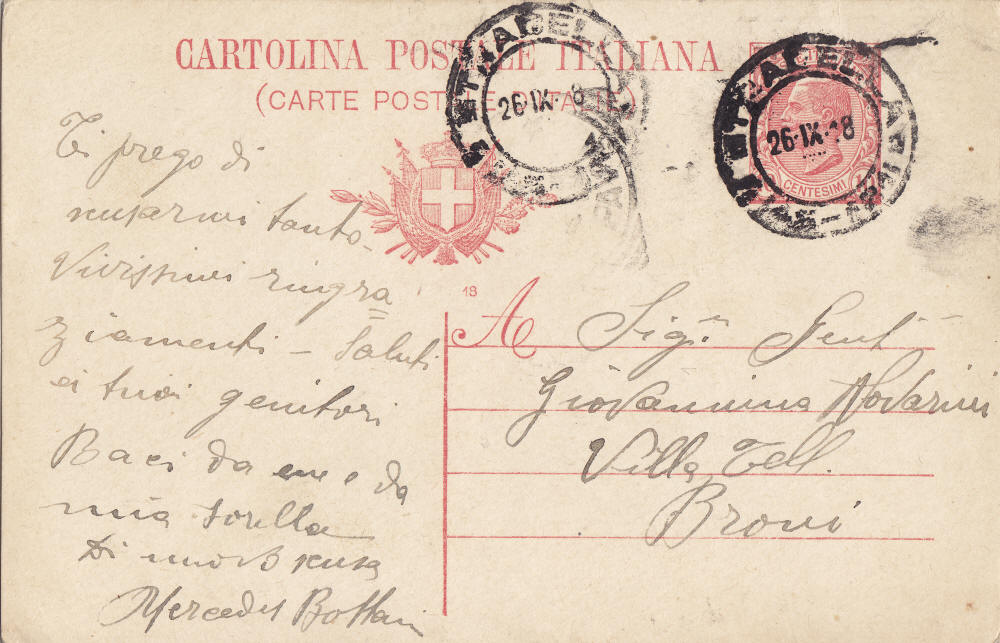 CARTOLINA POSTALE ITALIANA
(CARTE POSTALE D'ITALIE)
26·IX·18
26·IX·18
CENTESIMI
Ti prego di
scusarmi tanto-
Vivissimi ringra
ziamenti – Saluti
ai tuoi genitori
Baci da me e da
mia sorella
Di nuovo scusa
Mercedes
18
A
Sigª Gentª
Giovannina Novarini
Villa Tell
Broni